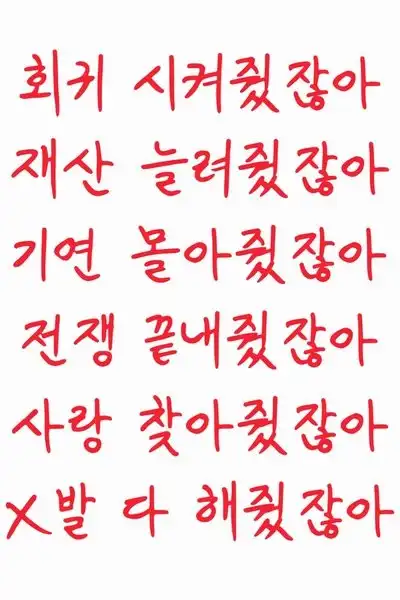 회귀 시켜줬잖아
재산 늘려줬잖아
기연 몰아줬잖아
전쟁 끝내줬잖아
사랑 찾아줬잖아
X발 다 해줬잖아